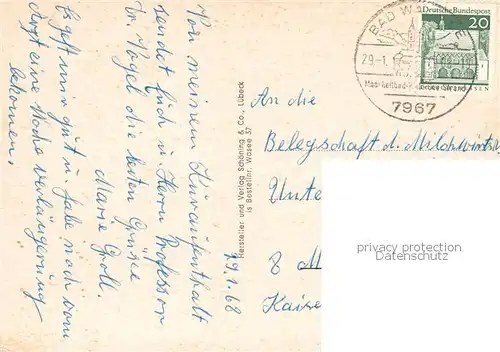 Von meinem Kuraufenthalt
sendet Euch u. Herrn Professor
Dr. Vogel die besten Grüsse
Marie Groll.
Es geht mir gut u. habe noch vom
Arzt eine Woche Verlängerung
bekommen.
19.1.68
Hersteller und Verlag Schöning & Co., Lübeck
is Bestellnr. Wasee 37
BAD W
29.-1.
Moorheilbad
7967
Deutsche Bundespost
20
An die
Belegschaft d. Milchwirtsch
Unte
8 M
Kaise
privacy protection
Datenschutz